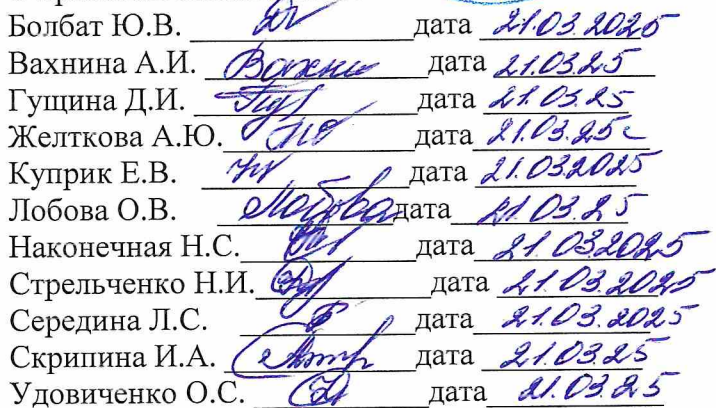 Болбат Ю.В. дата 21.03.2025
Вахнина А.И. Вахни дата 21.03.25
Гущина Д.И. дата 21.03.25
Желткова А.Ю. дата 21.03.25г
Куприк Е.В. дата 21.03.2025
Лобова О.В. Лобова дата 21.03.25
Наконечная Н.С. дата 21.032025
Стрельченко Н.И. дата 21.03.2025
Середина Л.С. дата 21.03.2025
Скрипина И.А. дата 21.03.25
Удовиченко О.С. дата 21.03.25